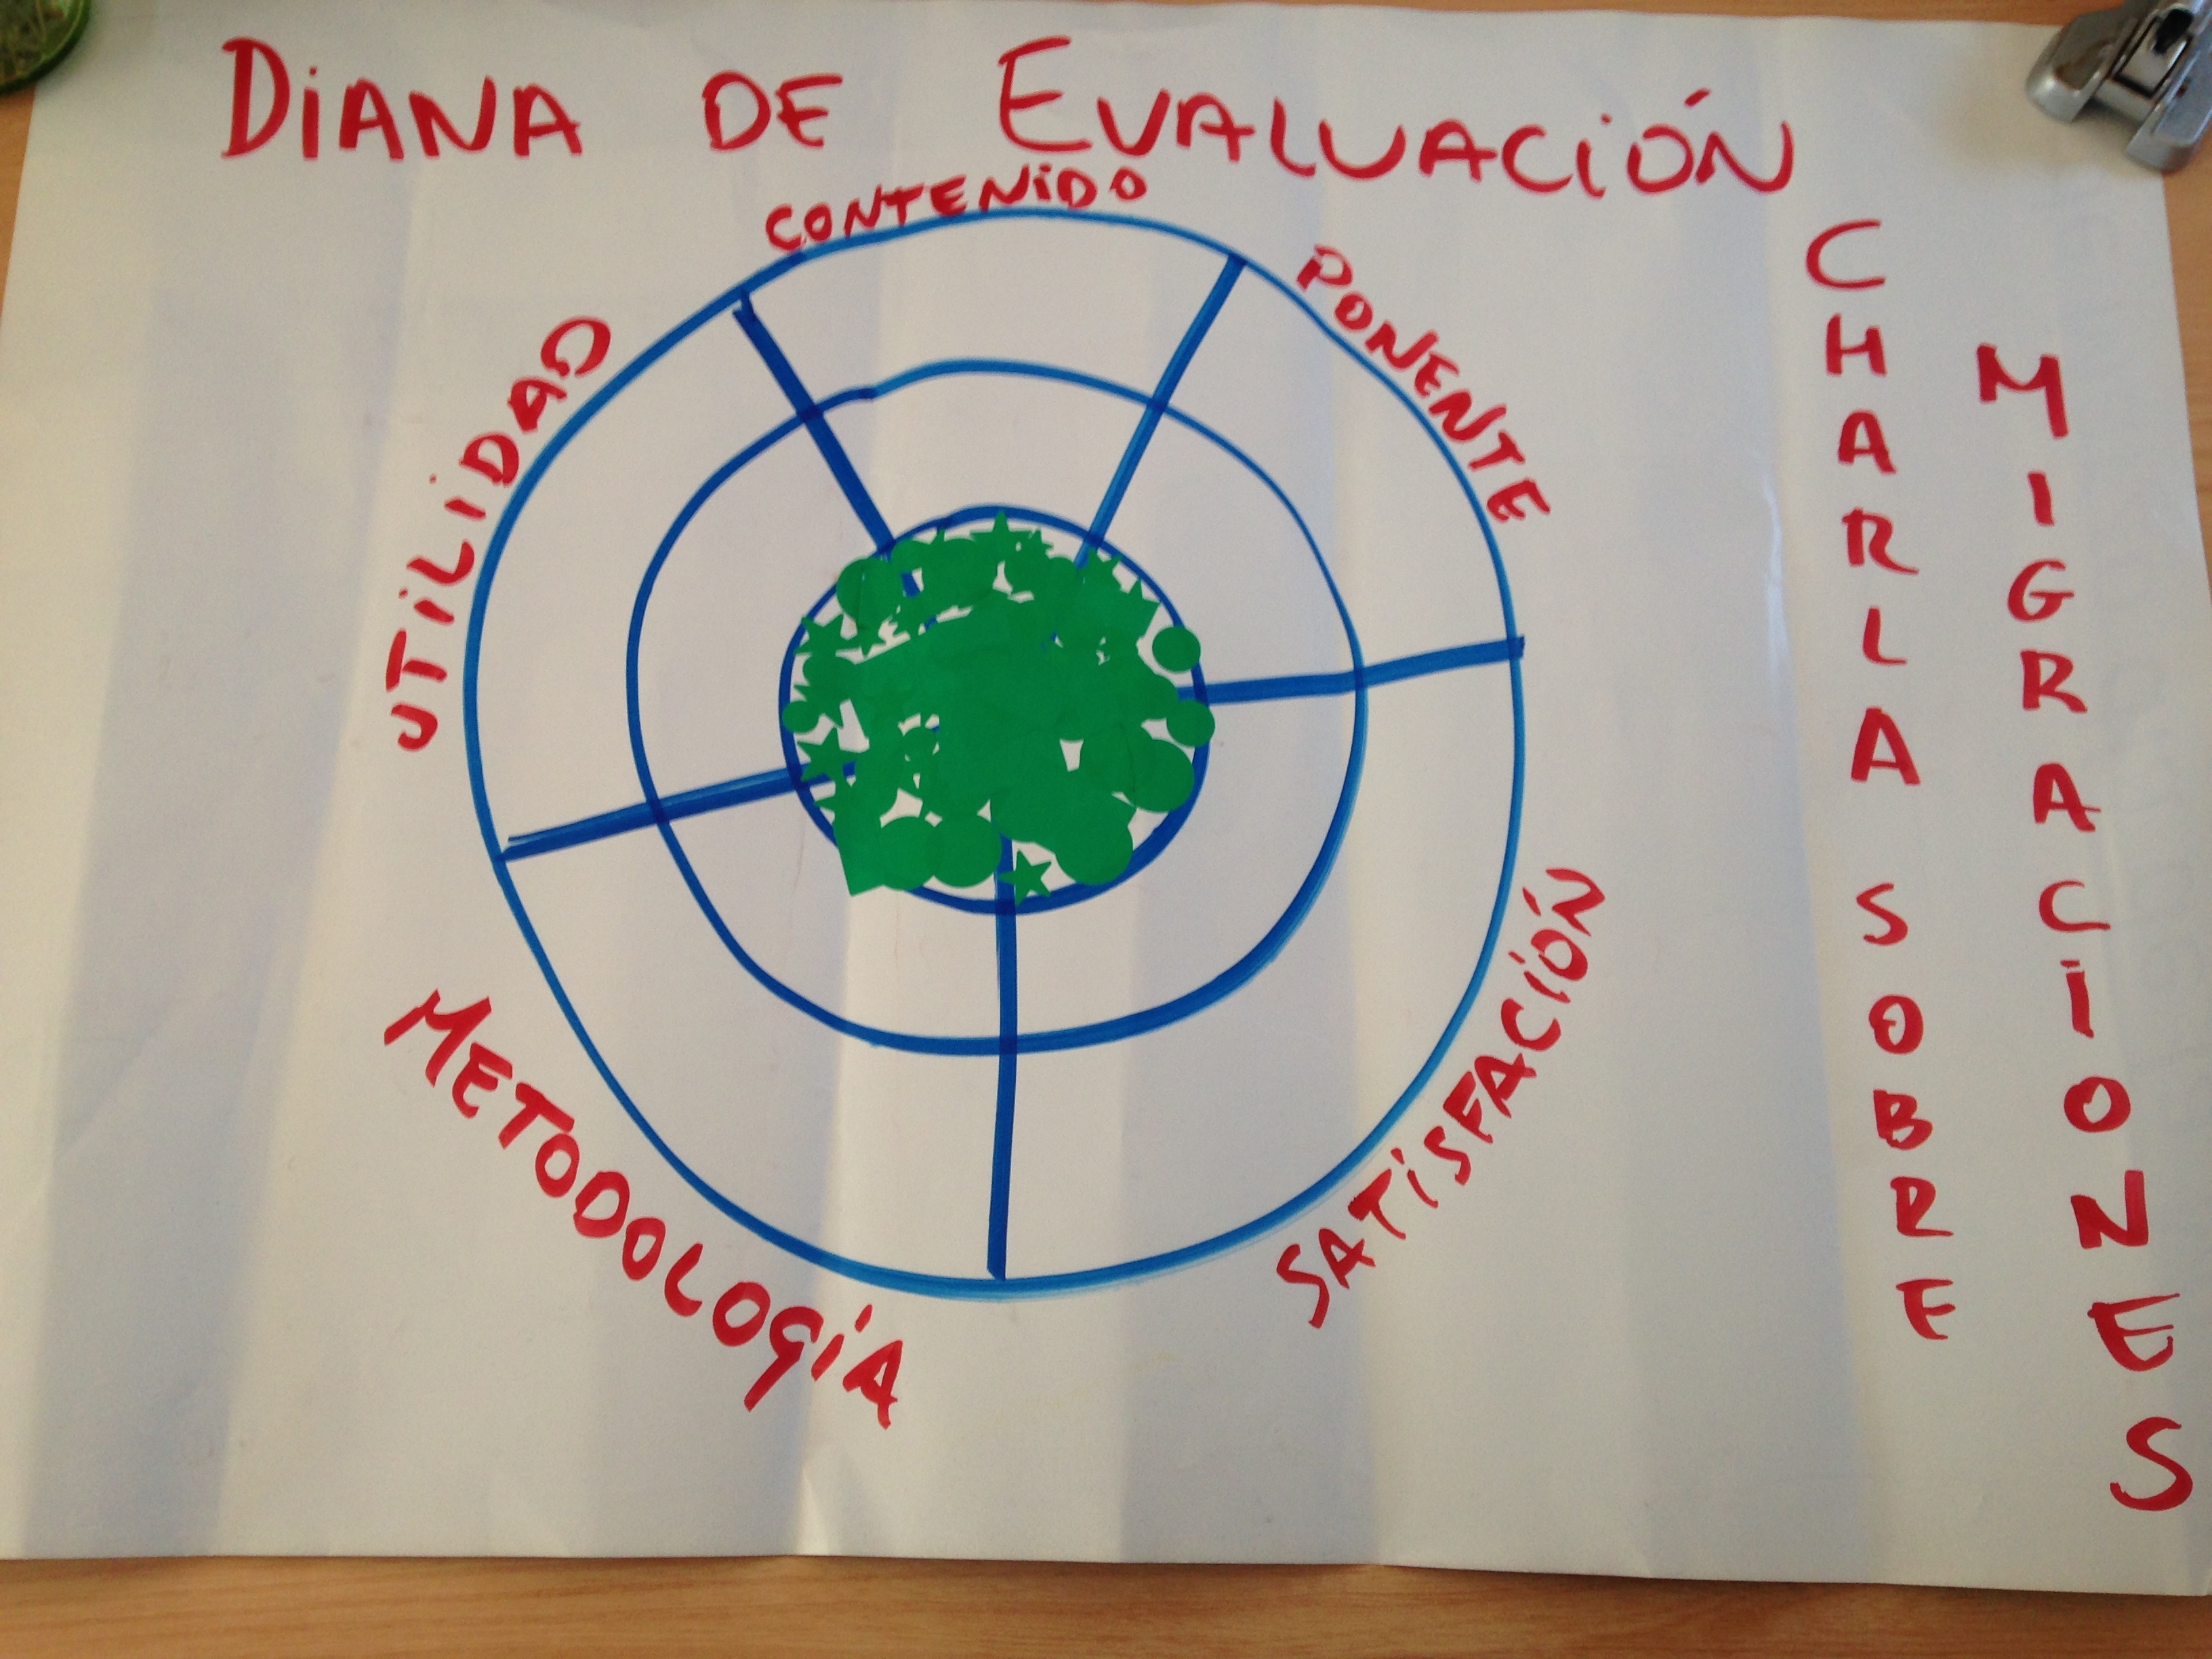 DIANA DE EVALUACIÓN
CONTENIDO
PONENTE
SATISFACIÓN
METODOLOGÍA
UTILIDAD
CHARLA SOBRE
MIGRACIONES